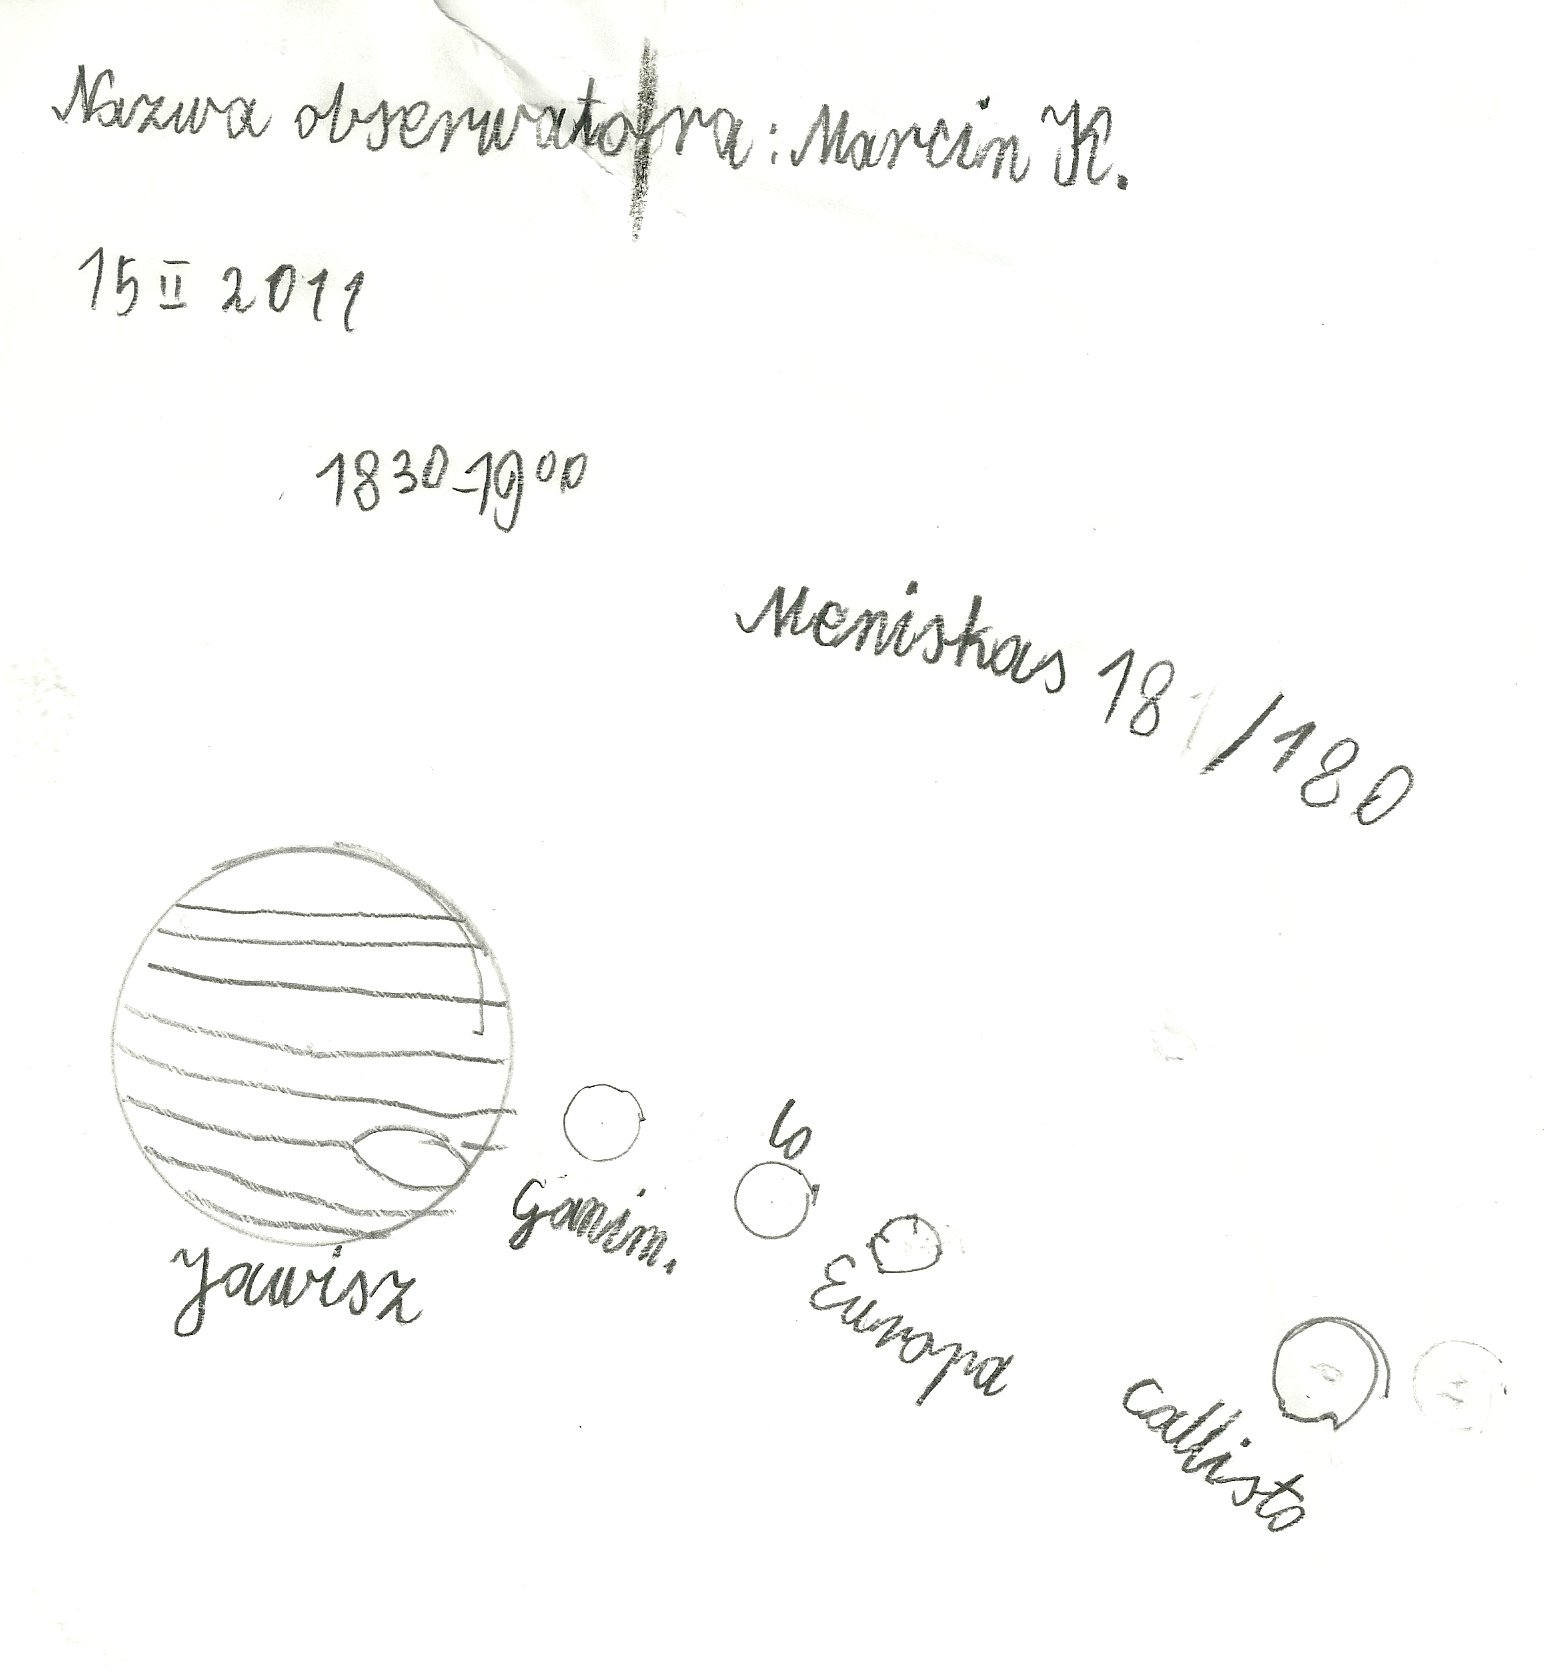 Nazwa obserwatora: Marcin K.
15 II 2011
18 30 - 19 00
Meniskas 18 /180
Io
Ganim.
Jowisz
Europa
Callisto